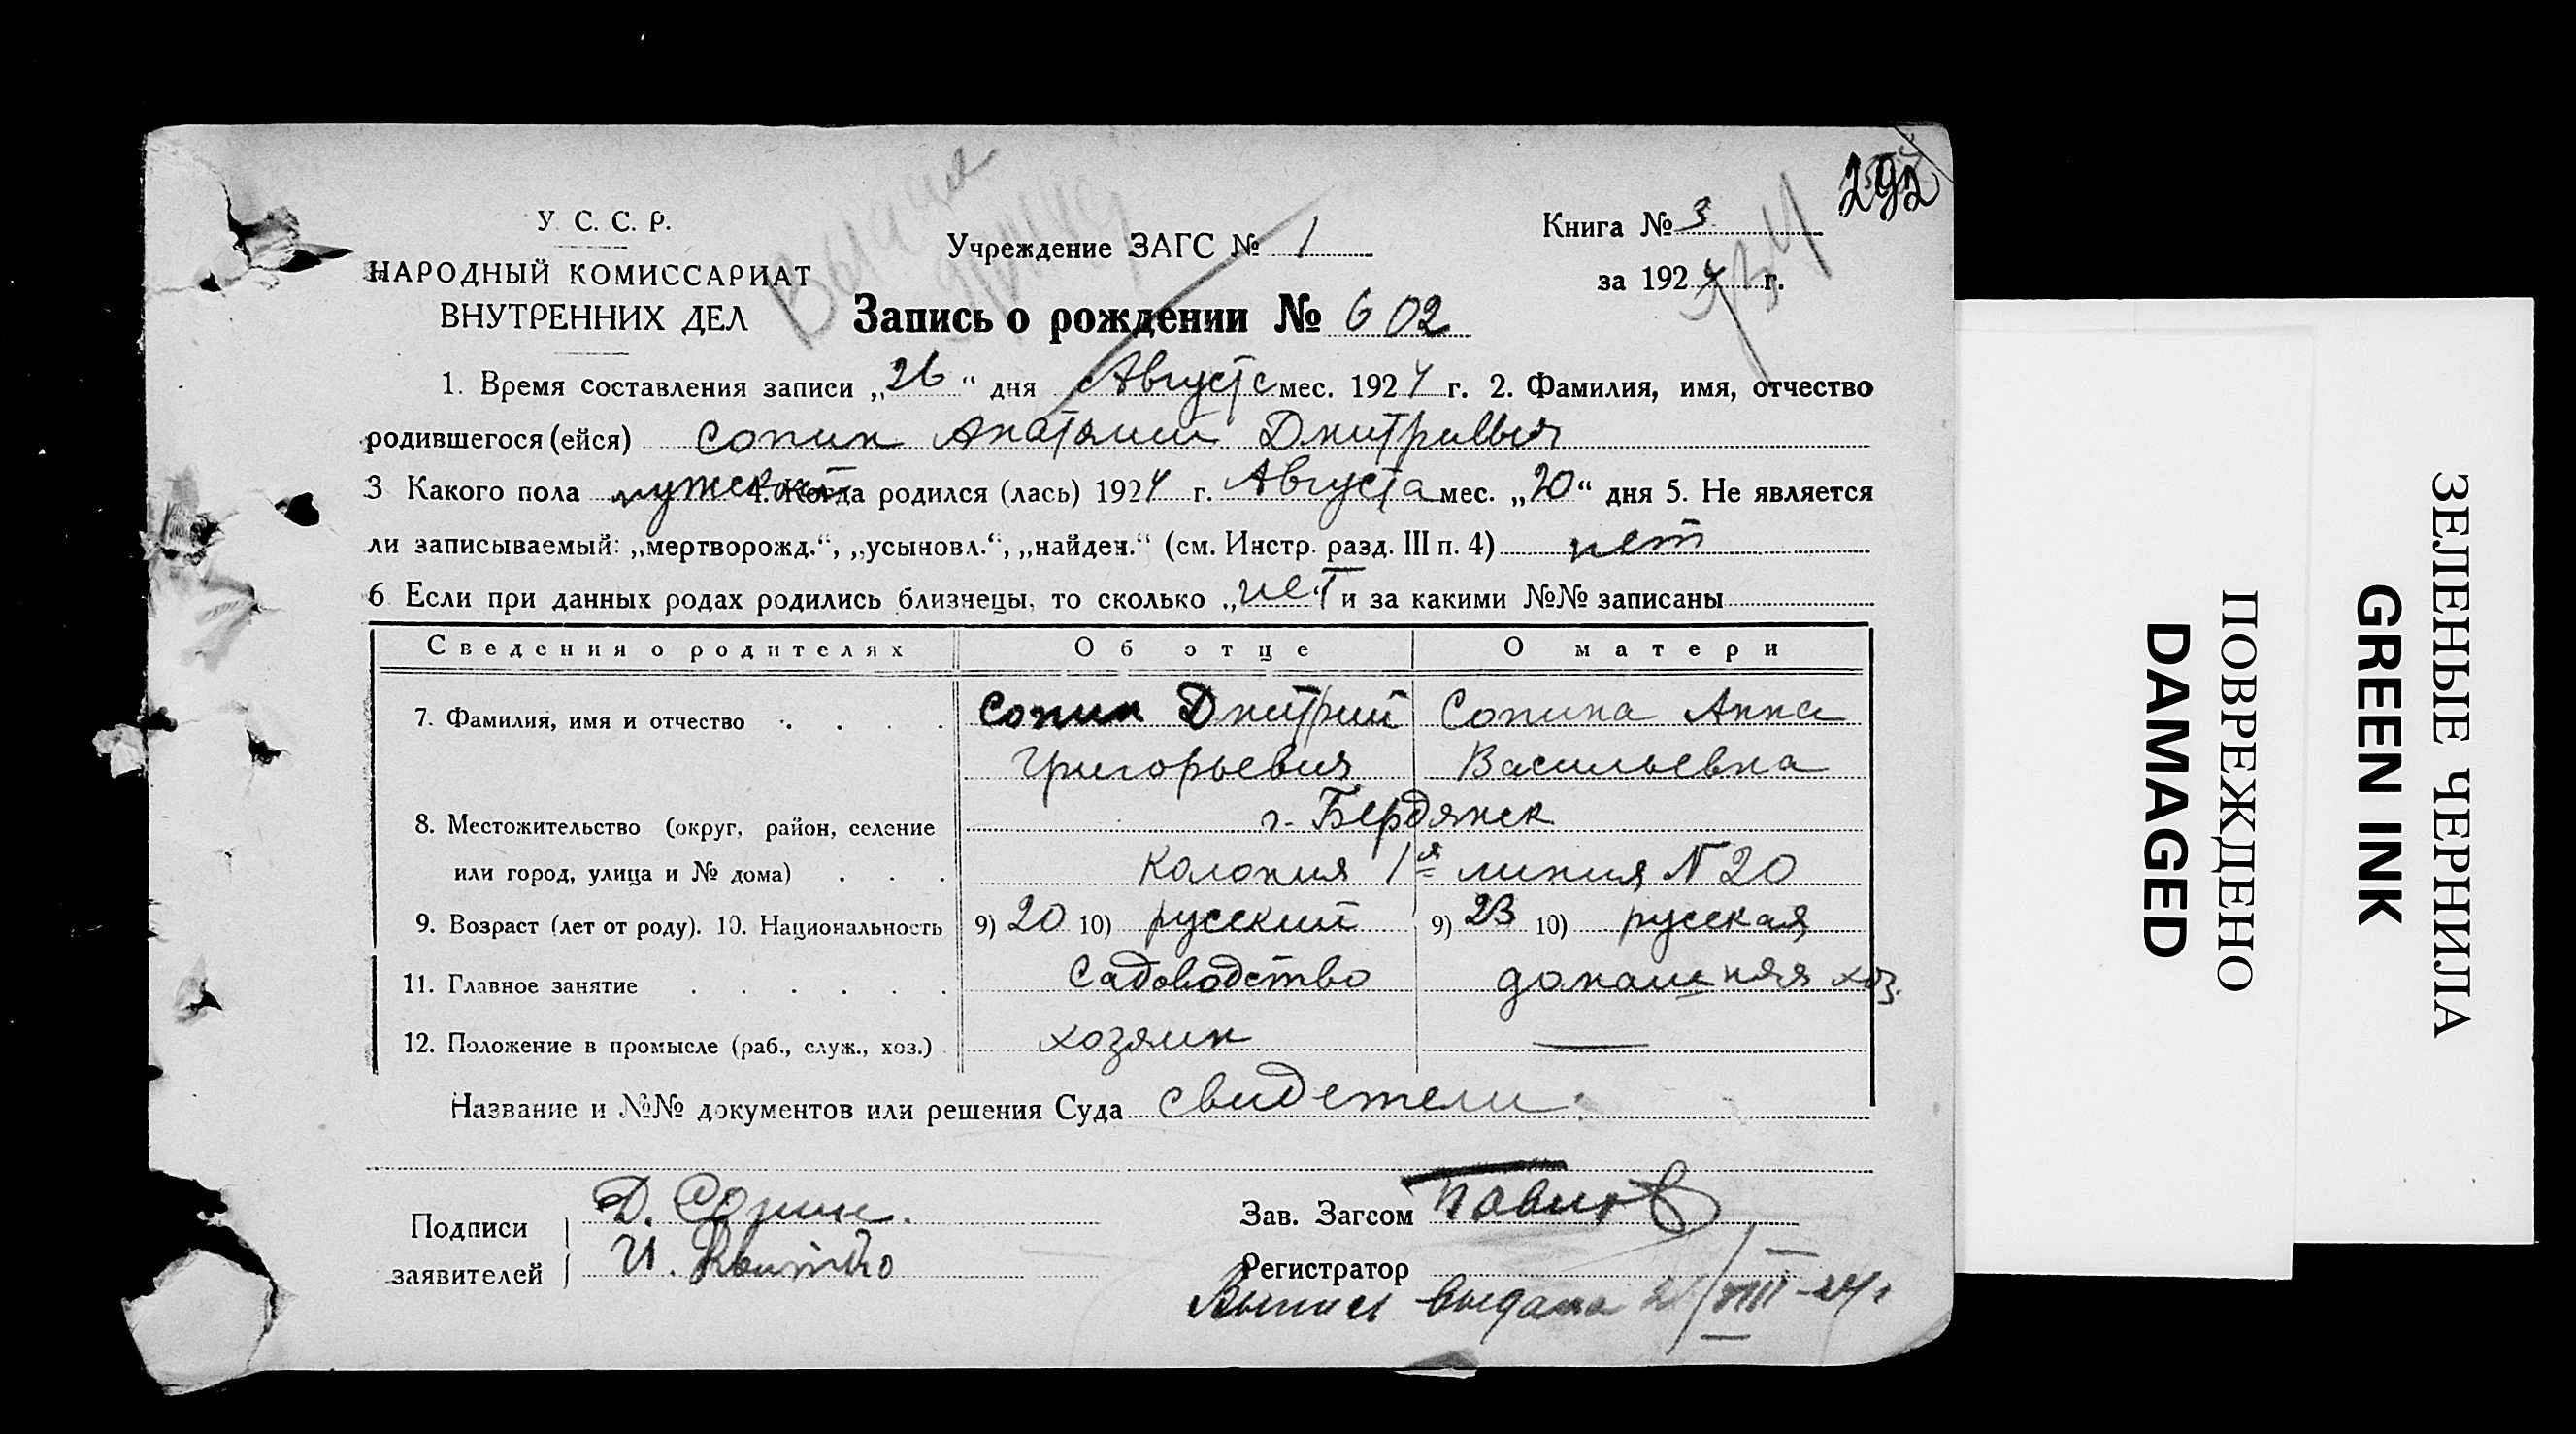 292
У. С. С. Р.
НАРОДНЫЙ КОМИССАРИАТ
ВНУТРЕННИХ ДЕЛ
Учреждение ЗАГС № 1
Книга № 3
за 1924 г.
Запись о рождении № 602
1. Время составления записи „26“ дня Августа мес. 1924 г. 2. Фамилия, имя, отчество
родившегося (ейся) Сопин Анатолий Дмитриевич
3 Какого пола мужской 4. Когда родился (лась) 1924 г. Августа мес. „20“ дня 5. Не является
ли записываемый: „мертворожд.“, „усыновл.“, „найден.“ (см. Инстр. разд. III п. 4) нет
6 Если при данных родах родились близнецы, то сколько „нет“ и за какими №№ записаны
Сведения о родителях Об отце О матери
7. Фамилия, имя и отчество . . . . Сопин Дмитрий Сопина Анна
Григорьевич Васильевна
8. Местожительство (округ, район, селение г. Бердянск
или город, улица и № дома) . . . Колония 1я линия N 20
9. Возраст (лет от роду). 10. Национальность 9) 20 10) русский 9) 23 10) русская
11. Главное занятие . . . . . . Садоводство домашняя хоз.
12. Положение в промысле (раб., служ., хоз.) хозяин —
Название и №№ документов или решения Суда свидетели
Подписи Д. Сопин.
заявителей И.
Зав. Загсом Павлов
Регистратор
Выпись выдана /VIII-24 г
ЗЕЛЕНЫЕ ЧЕРНИЛА
GREEN INK
ПОВРЕЖДЕНО
DAMAGED